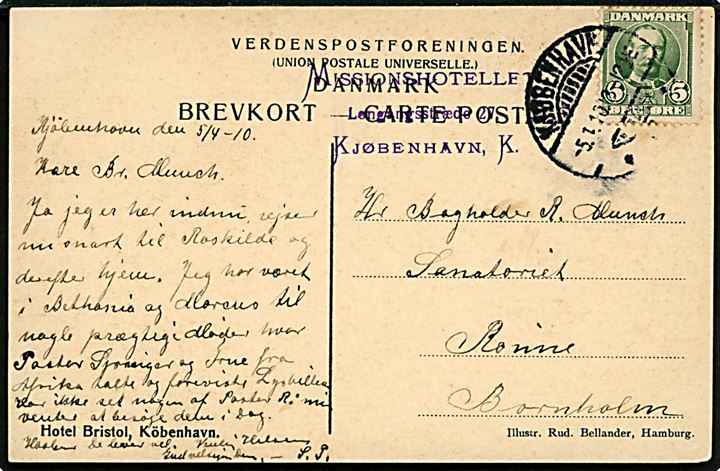 VERDENSPOSTFORENINGEN.
(UNION POSTALE UNIVERSELLE.)
MISSIONSHOTELLET
DANMARK
BREVKORT — CARTE POST
Longangsstræde 27
KJØBENHAVN, K.
DANMARK
5 5
ØRE
KJØBENHAVN
Kjöbenhavn den 5/4-10.
Kære Br. Munch.
Ja jeg er her indnu, rejser
nu snart til Roskilde og
derefter hjem. Jeg har været
i Bethania og Marcus til
nogle prægtige Møder hvor
Pastor og Frue fra
Afrika talte og foreviste Lysbilleder
har ikke set noget af Pastor R. mi
venter at besøge dem i Dag.
Hotel Bristol, Köbenhavn.
De lever vel. Venlig Hilsen
S. P.
Hr Bogholder R. Munch
Sanatoriet
Rönne
Bornholm
Illustr. Rud. Bellander, Hamburg.